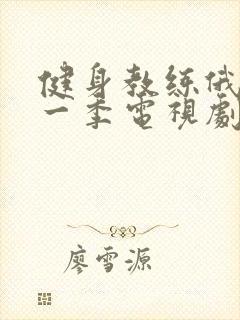 健身教练俄
一季電視劇
廖雪源